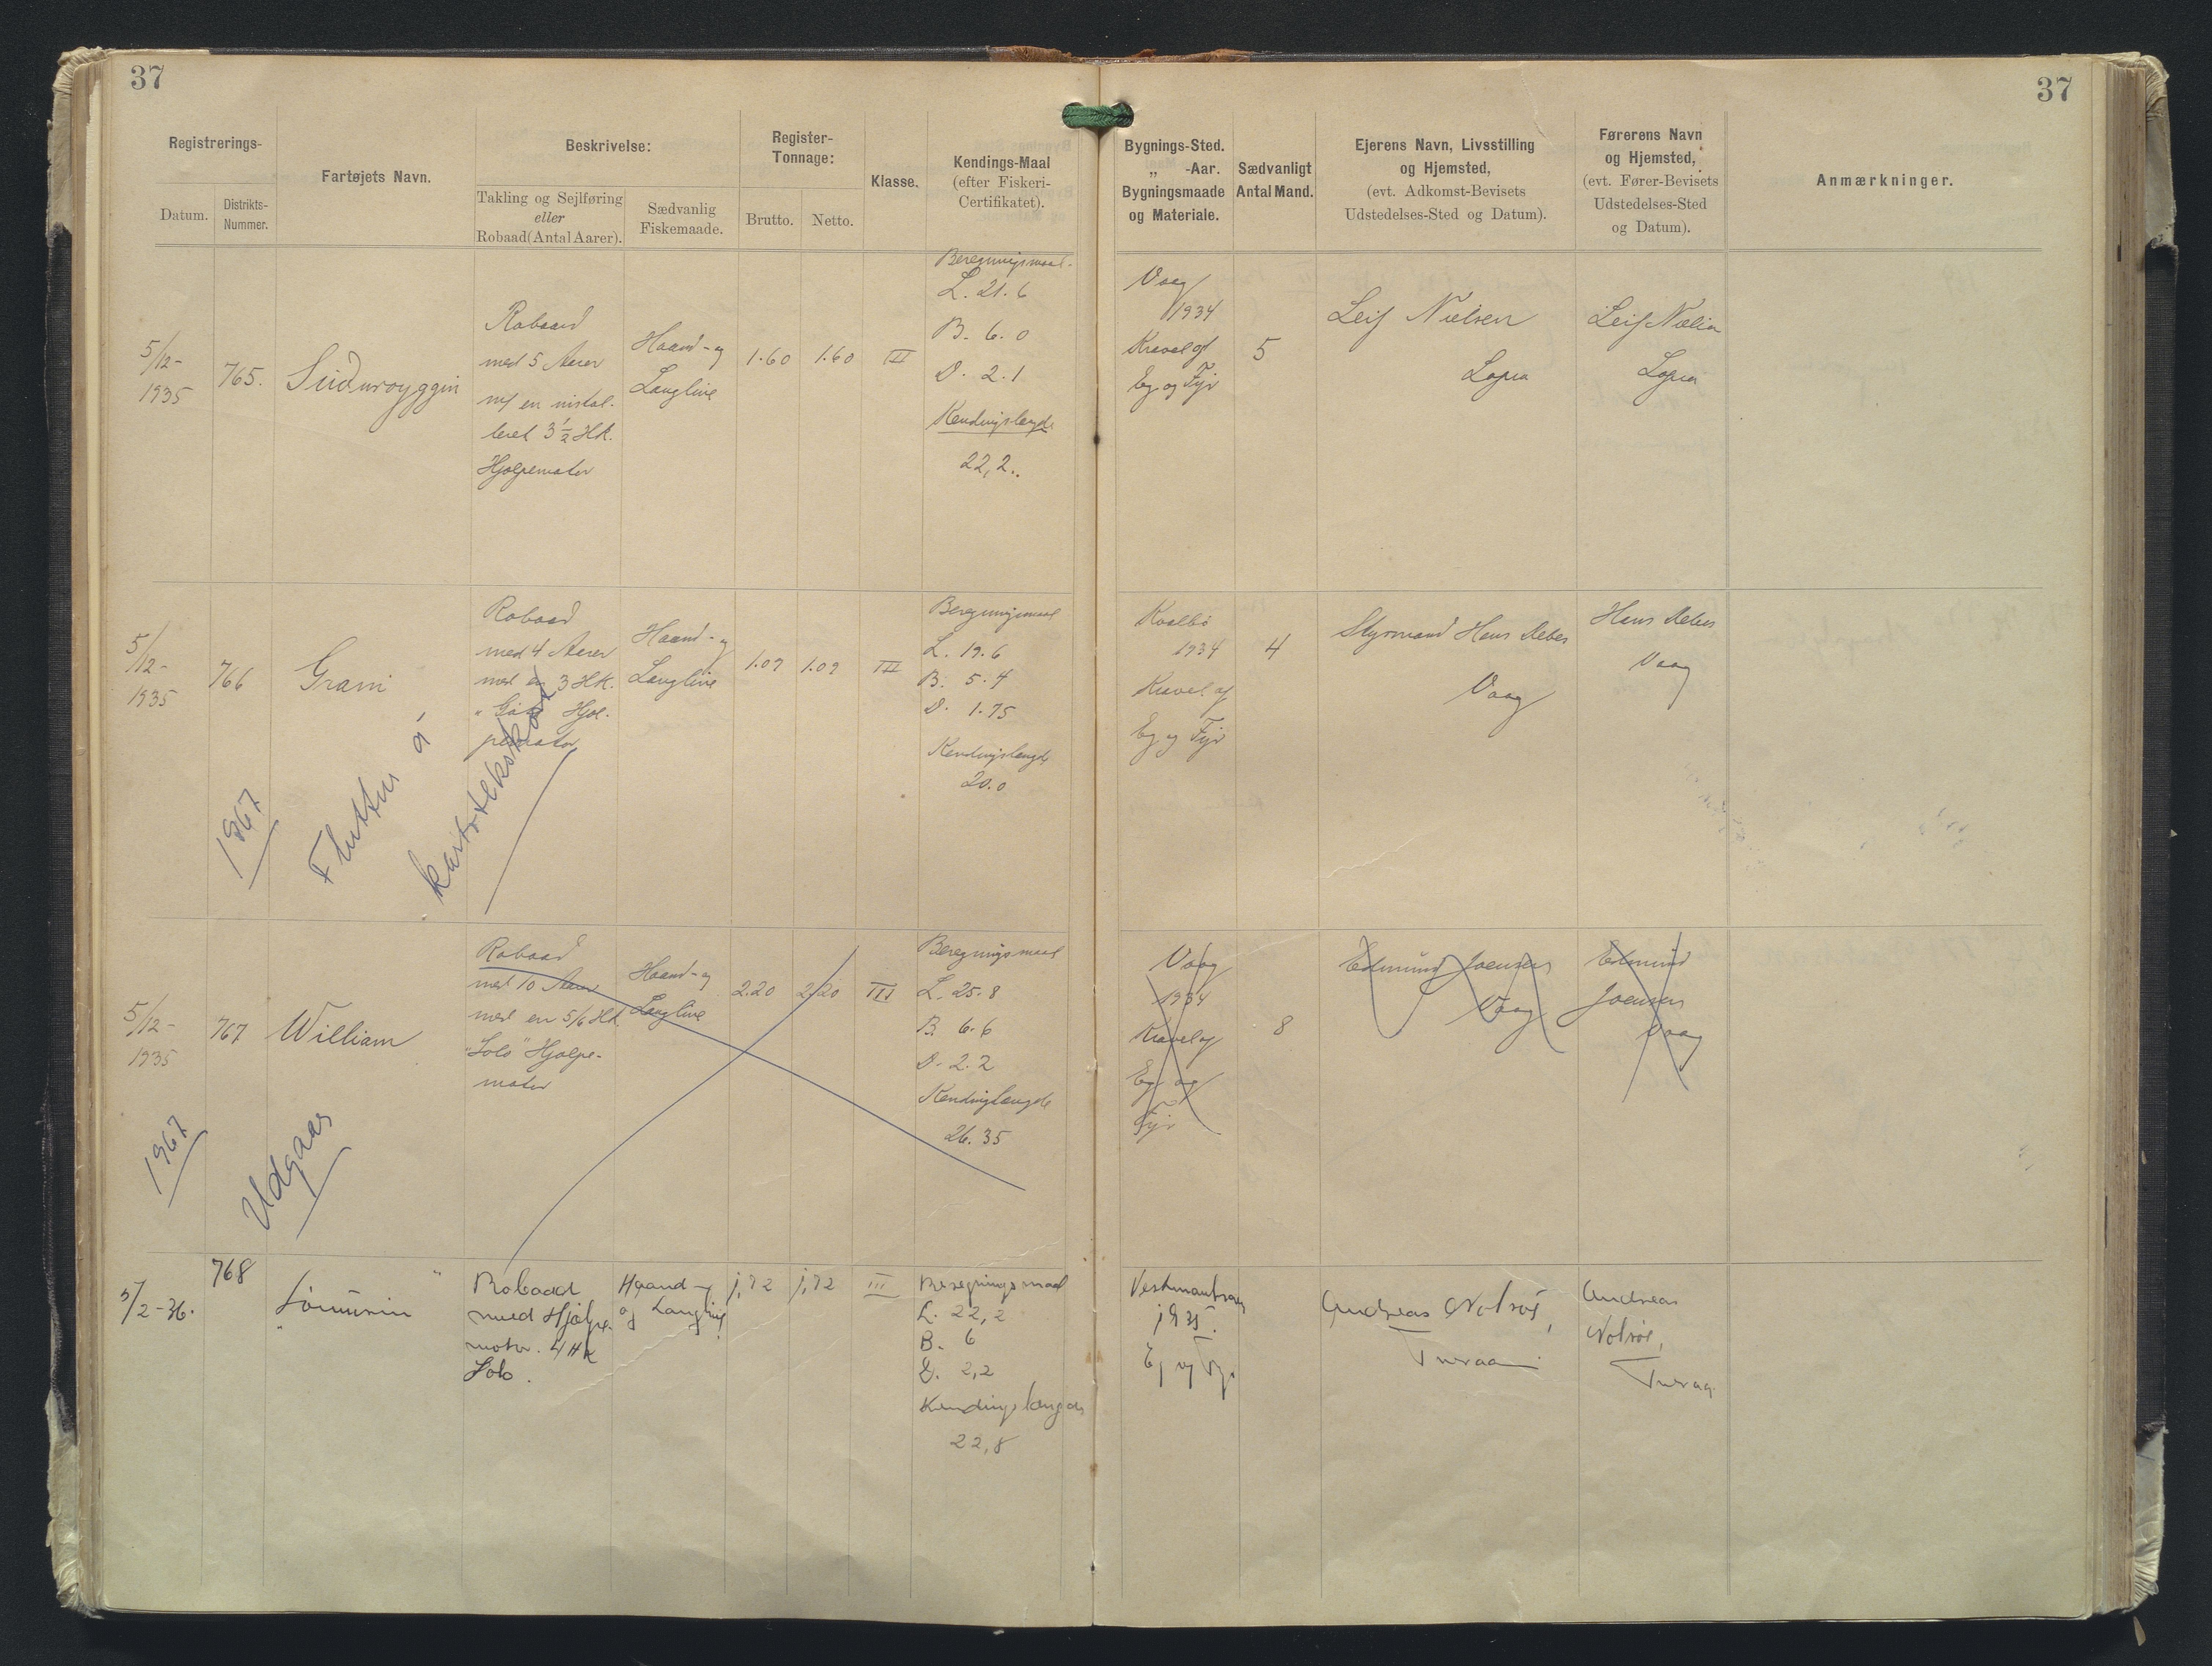 37
37
Registrerings-
Datum.
Distrikts-
Nummer.
Fartøjets Navn.
Beskrivelse:
Takling og Sejlføring
eller
Robaad (Antal Aarer).
Sædvanlig
Fiskemaade.
Register-
Tonnage:
Brutto.
Netto.
Klasse.
Kendings-Maal
(efter Fiskeri-
Certifikatet).
Bygnings-Sted.
„ -Aar.
Bygningsmaade
og Materiale.
Sædvanligt
Antal Mand.
Ejerens Navn, Livsstilling
og Hjemsted,
(evt. Adkomst-Bevisets
Udstedelses-Sted og Datum).
Førerens Navn
og Hjemsted,
(evt. Fører-Bevisets
Udstedelses-Sted
og Datum).
Anmærkninger.
5/12-
1935
765.
Suduroyggin
Robaad
med 5 Aarer
m/ en instal-
leret 3 1/2 HK.
Hjælpemotor
Haand- og
Langline
1.60
1.60
III
Beregningsmaal.
L. 21.6
B. 6.0
D. 2.1
Kendingslængde
22,2.
Vaag
1934
Kravel af
Eg og Fyr
5
Leif Nielsen
Lopra
Leif Nielsen
Lopra
5/12-
1935
766
Grani
Robaad
med 4 Aarer
med en 3 HK.
Hjæl-
pemotor
Haand- og
Langline
1.09
1.09
III
Beregningsmaal
L. 19.6
B. 5.4
D. 1.75
Kendingslængde
20.0
Kvalbø
1934
Kravel af
Eg og Fyr
4
Styrmand Hans Debes
Vaag
Hans Debes
Vaag
1967
Fluttur á
kartotekskort
5/12-
1935
767
William
Robaad
med 10 Aarer
med en 5/6 HK
"Solo" Hjælpe-
motor
Haand- og
Langline
2.20
2.20
III
Beregningsmaal
L. 25.8
B. 6.6
D. 2.2
Kendingslængde
26.35
Vaag
1934
Kravel af
Eg og
Fyr
8
Edmund Joensen
Vaag
Edmund
Joensen
Vaag
1967
Udgaar
5/2-36.
768
Robaad
med Hjælpe-
motor. 4 HK
Solo.
Haand-
og Langline
1,72
1,72
III
Beregningsmaal
L. 22,2
B. 6
D. 2,2
Kendingslængde
22,8
1935.
Eg og Fyr
Andreas Nolsøe,
Tveraa
Andreas
Nolsøe,
Tveraa